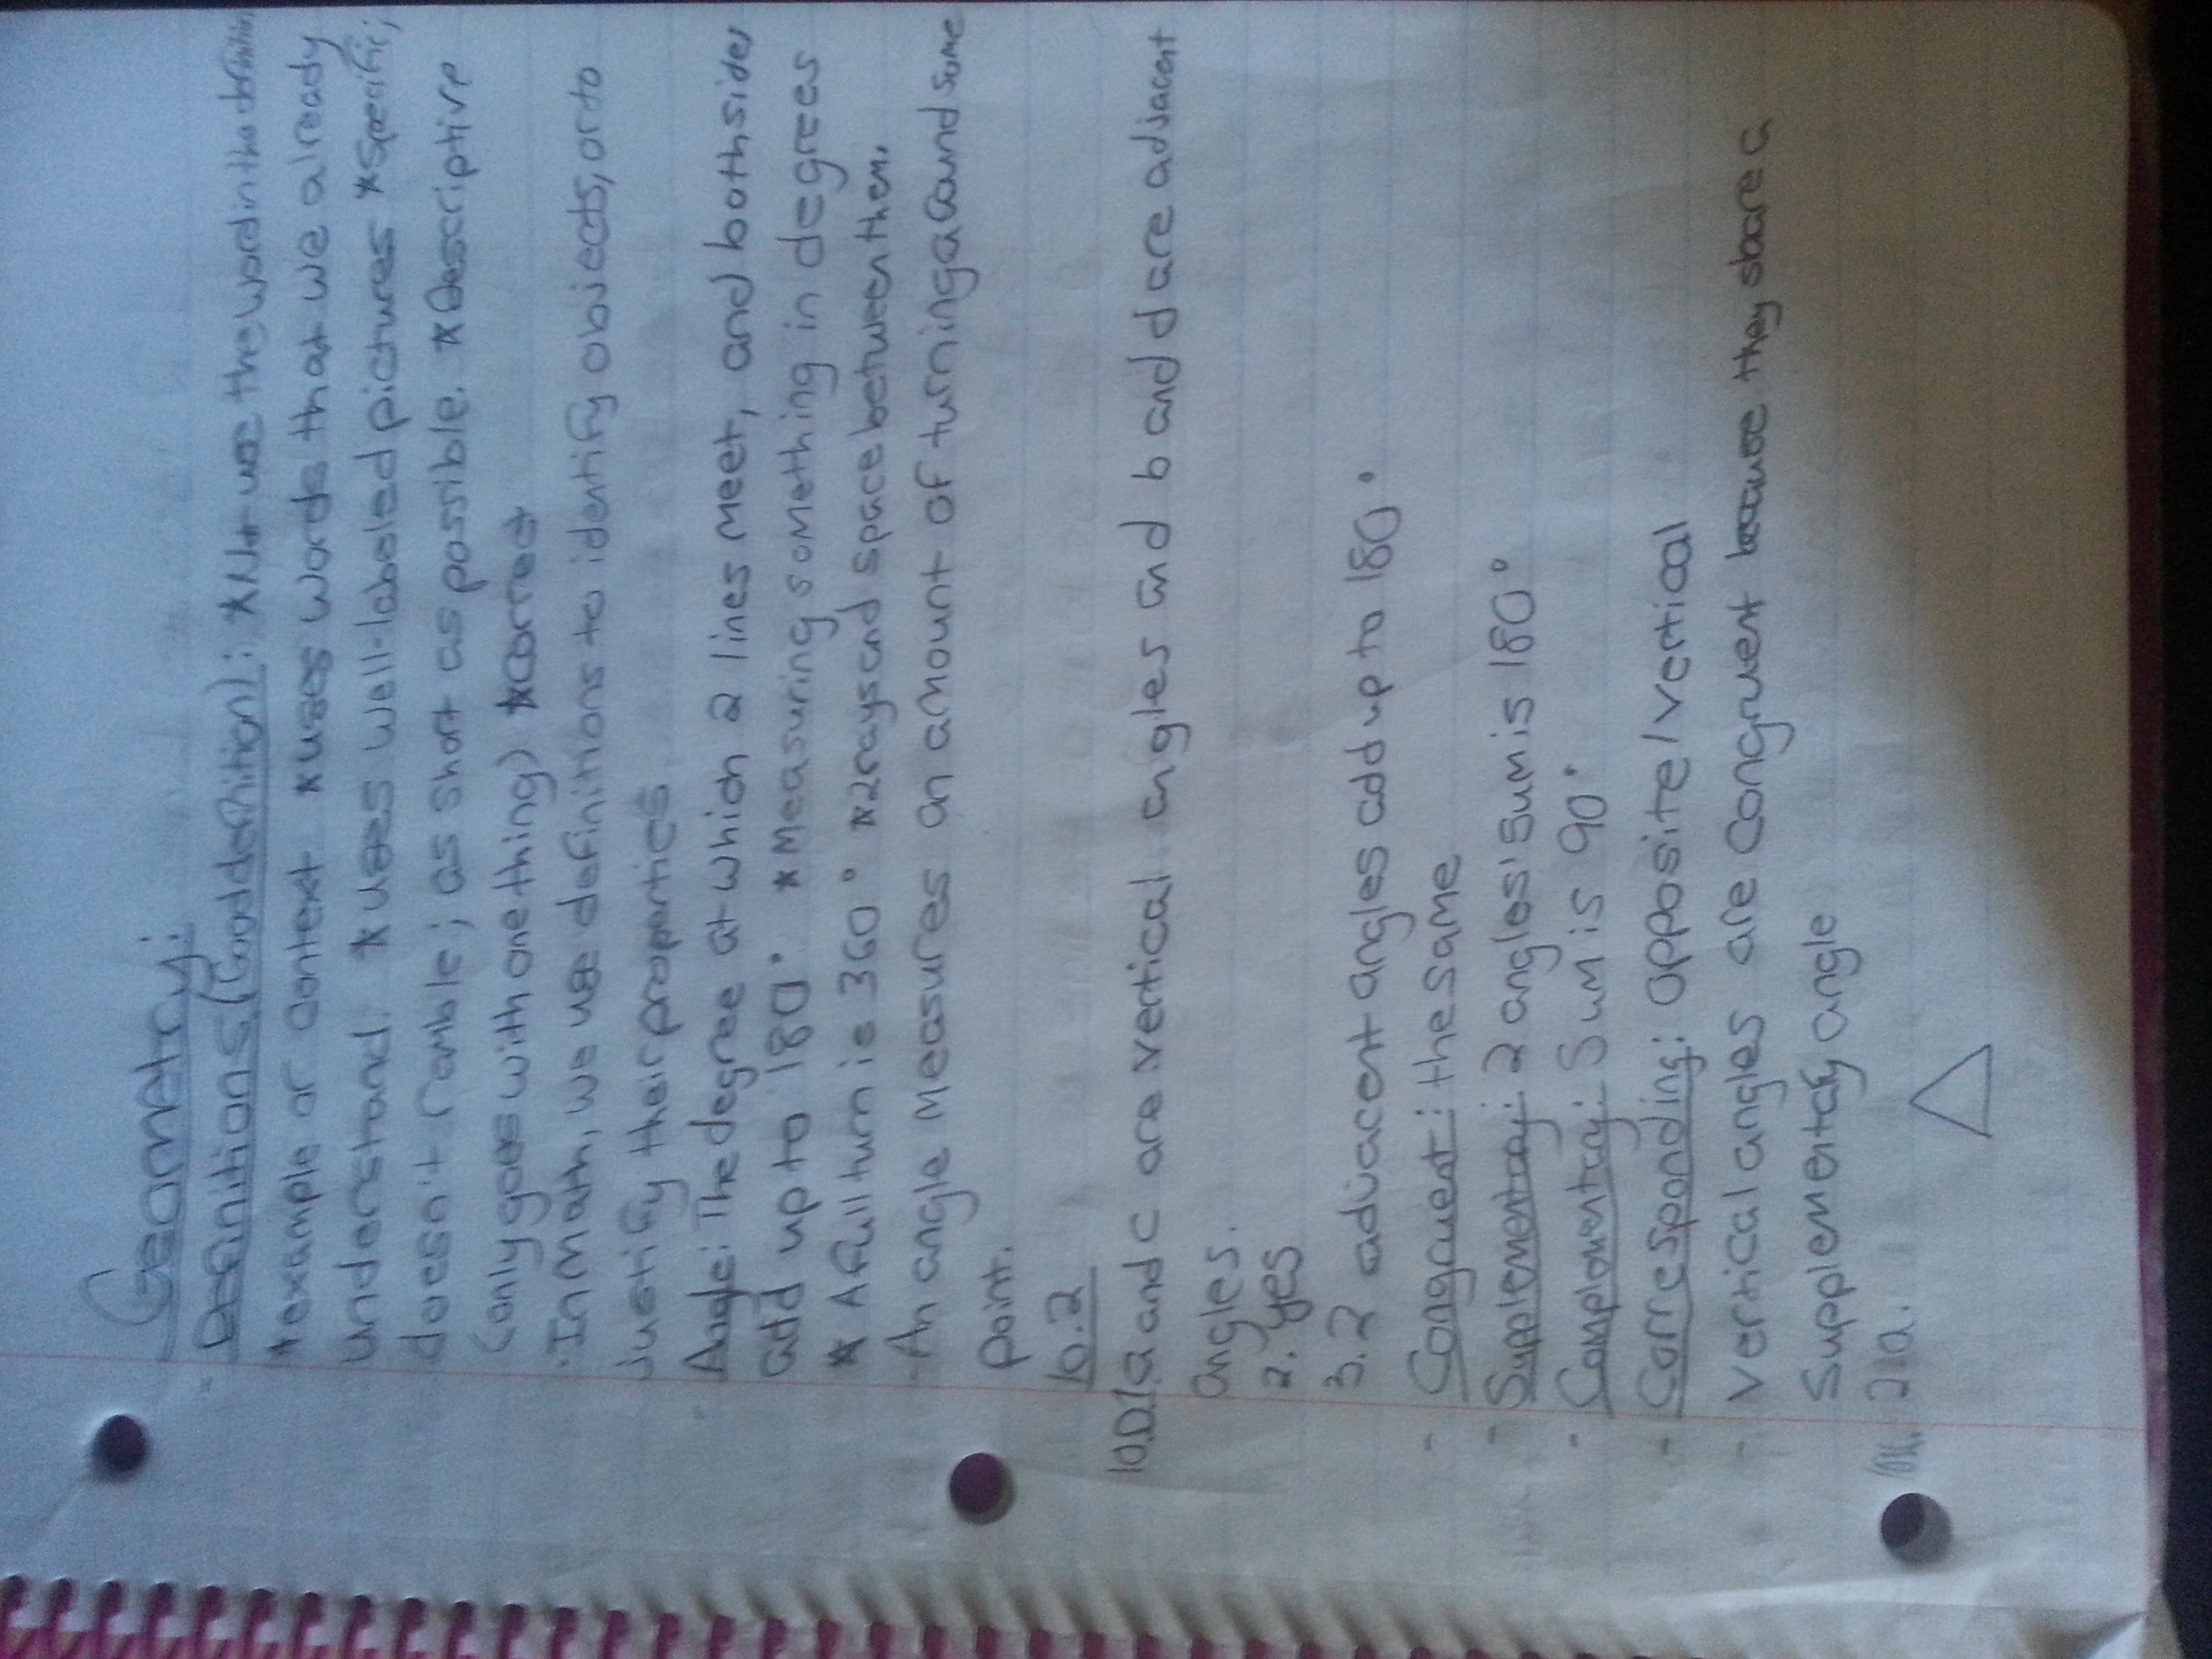 Geometry:
- Definitions (Good definition): *Not use the word in the definition
*example or context *uses words that we already
understand. *uses well-labeled pictures *Specific;
doesn't ramble; as short as possible. *Descriptive
(only goes with one thing) *Correct
· In math, we use definitions to identify objects, or to
justify their properties
- Angle: The degree at which 2 lines meet, and both sides
add up to 180° *Measuring something in degrees
* A full turn is 360° *2 rays and space between them.
- An angle measures an amount of turning around some
point.
10.2
10.D.1 a and c are vertical angles and b and d are adjacent
angles.
2. yes
3. 2 adjacent angles add up to 180°.
- Congruent: the same
- Supplementary: 2 angles' sum is 180°
- Complementry: Sum is 90°
- Corresponding: opposite/vertical
- Vertical angles are congruent because they share a
Supplementary angle
21a.